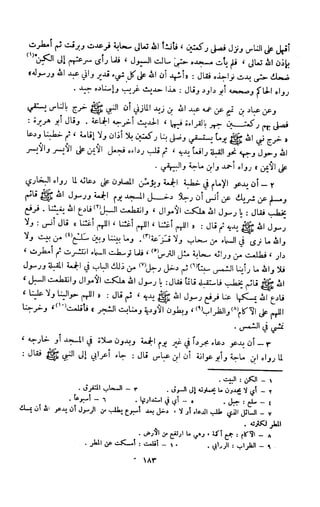 أقبل على الناس ونزل فصلى ركعتين ، فأنشأ الله تعالى سحابة فرعدت وبرقت ثم أمطرت
بإذن الله تعالى ، فلم يأت مسجده حتى سالت السيول ، فلما رأى سرعتهم إلى الكن(١)
ضحك حتى بدت نواجذه فقال : « أشهد أن الله على كل شيء قدير وأني عبد الله ورسوله »
رواه الحاكم وصححه أبو داود وقال : هذا حديث غريب وإسناده جيد .
وعن عباد بن تميم عن عمه عبد الله بن زيد المازني أن النبي ﷺ خرج بالناس يستقي
فصلى بهم ركعتين جهر بالقراءة فيها ، الحديث أخرجه الجماعة . وقال أبو هريرة :
« خرج نبي الله ﷺ يوماً يستسقي وصلى بنا ركعتين بلا أذان ولا إقامة ، ثم خطبنا ودعا
الله وحول وجهه نحو القبلة رافعاً يديه ، ثم قلب رداءه فجعل الأيمن على الأيسر والأيسر
على الأيمن » رواه أحمد وابن ماجة والبيهقي .
٢ - أن يدعو الإمام في خطبة الجمعة ويؤمن المصلون على دعائه لما رواه البخاري
ومسلم عن شريك عن أنس أن رجلاً دخل المسجد يوم الجمعة ورسول الله ﷺ قائم
يخطب فقال : يا رسول الله هلكت الأموال ، وانقطعت السبل(٢) فادع الله يغيثنا . فرفع
رسول الله ﷺ يديه ثم قال : « اللهم أغثنا ، اللهم أغثنا ، اللهم أغثنا » قال أنس : ولا
والله ما نرى في السماء من سحاب ولا قزعة(٣). وما بيننا وبين سلع(٤) من بيت ولا
دار ، فطلعت من ورائه سحابة مثل الترس(٥) فلما توسطت السماء انتشرت ثم أمطرت ،
فلا والله ما رأينا الشمس سبتاً(٦) ثم دخل رجل(٧) من ذلك الباب في الجمعة المقبلة ورسول
الله ﷺ قائم يخطب فاستقبله قائماً فقال : يا رسول الله هلكت الأموال وانقطعت السبل ،
فادع الله يمسكها عنا فرفع رسول الله ﷺ يديه ، ثم قال : « اللهم حوالينا ولا علينا ،
اللهم على الآكام(٨) والظراب(٩) ، وبطون الأودية ومنابت الشجر » فأقلعت(١٠) ، وخرجنا
نمشي في الشمس .
٣ - أن يدعو دعاء مجرداً في غير يوم الجمعة وبدون صلاة في المسجد أو خارجه ،
لما رواه ابن ماجة وأبو عوانة أن ابن عباس قال : جاء أعرابي إلى النبي ﷺ فقال :
١ - الكن : البيت .
٢ - أي لا يجدون ما يحملونه إلى السوق . ٣ - السحاب المتفرق .
٤ - سلع : جبل . ٥ - أي في استدارتها . ٦ - أسبوعاً .
٧ - السائل الذي طلب الدعاء أولا ، دخل بعد أسبوع يطلب من الرسول أن يدعو الله أن يمسك
المطر لكثرته .
٨ - الآكام : جمع أكمة . وهي ما ارتفع من الأرض .
٩ - الظراب : الروابي . ١٠ - أقلعت : أمسكت عن المطر .
١٨٣